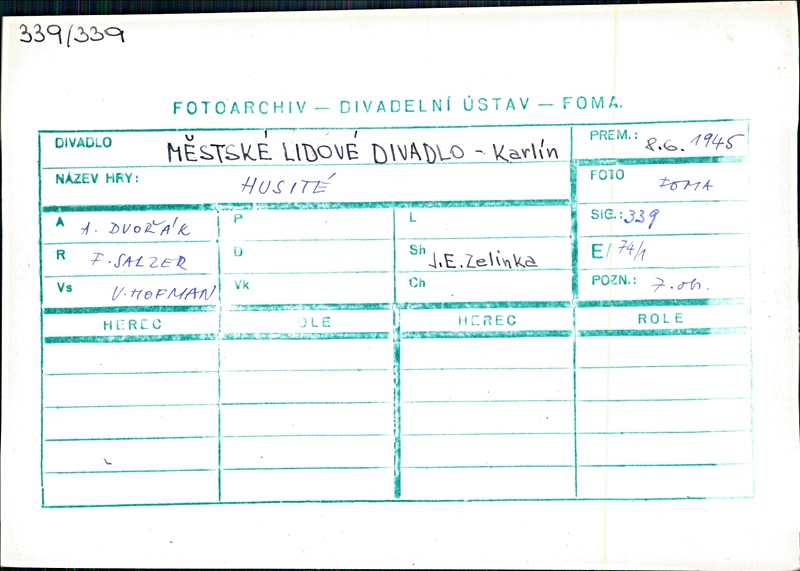 339/339
FOTOARCHIV — DIVADELNÍ ÚSTAV — FOMA.
DIVADLO MĚSTSKÉ LIDOVÉ DIVADLO - Karlín
PREM.: 8.6. 1945
NÁZEV HRY: HUSITÉ
FOTO FOMA
A A. DVOŘÁK
P
L
SIG.: 339
R F. SALZER
D
Sh J.E. Zelinka
E/ 74/1
Vs V. HOFMAN
Vk
Ch
POZN.: 7. ob.
HEREC OLE HEREC ROLE